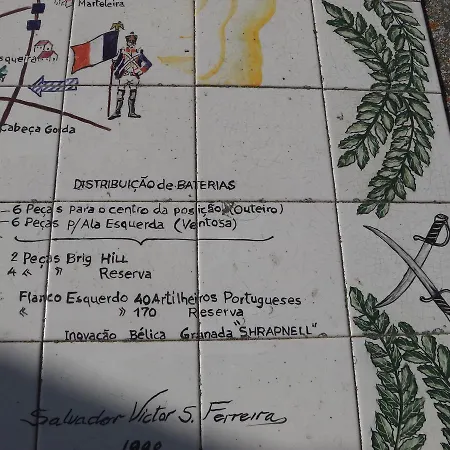 Marteleira
Cabeça Gorda
DISTRIBUIÇÃO de BATERIAS
6 Peças para o centro da posição (Outeiro)
6 Peças p/Ala Esquerda (Ventosa)
2 Peças Brig HILL
4 « » Reserva
Flanco Esquerdo 40 Artilheiros Portugueses
« » 170 Reserva
Inovação Bélica Granada "SHRAPNELL"
Salvador Victor S. Ferreira